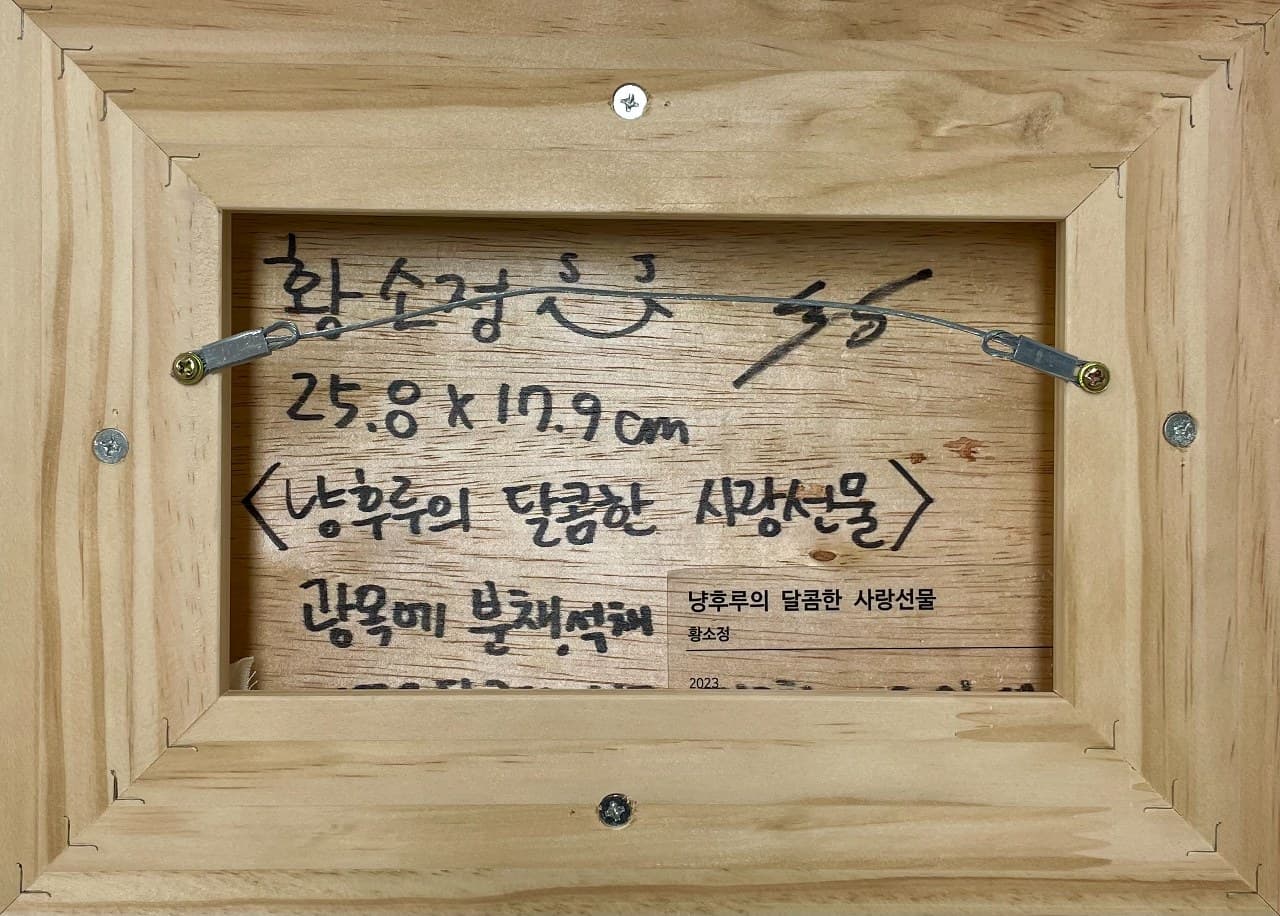 황소정 S J
25.8 x 17.9 cm
<냥후루의 달콤한 사랑선물>
광목에 분채, 석채
냥후루의 달콤한 사랑선물
황소정
2023